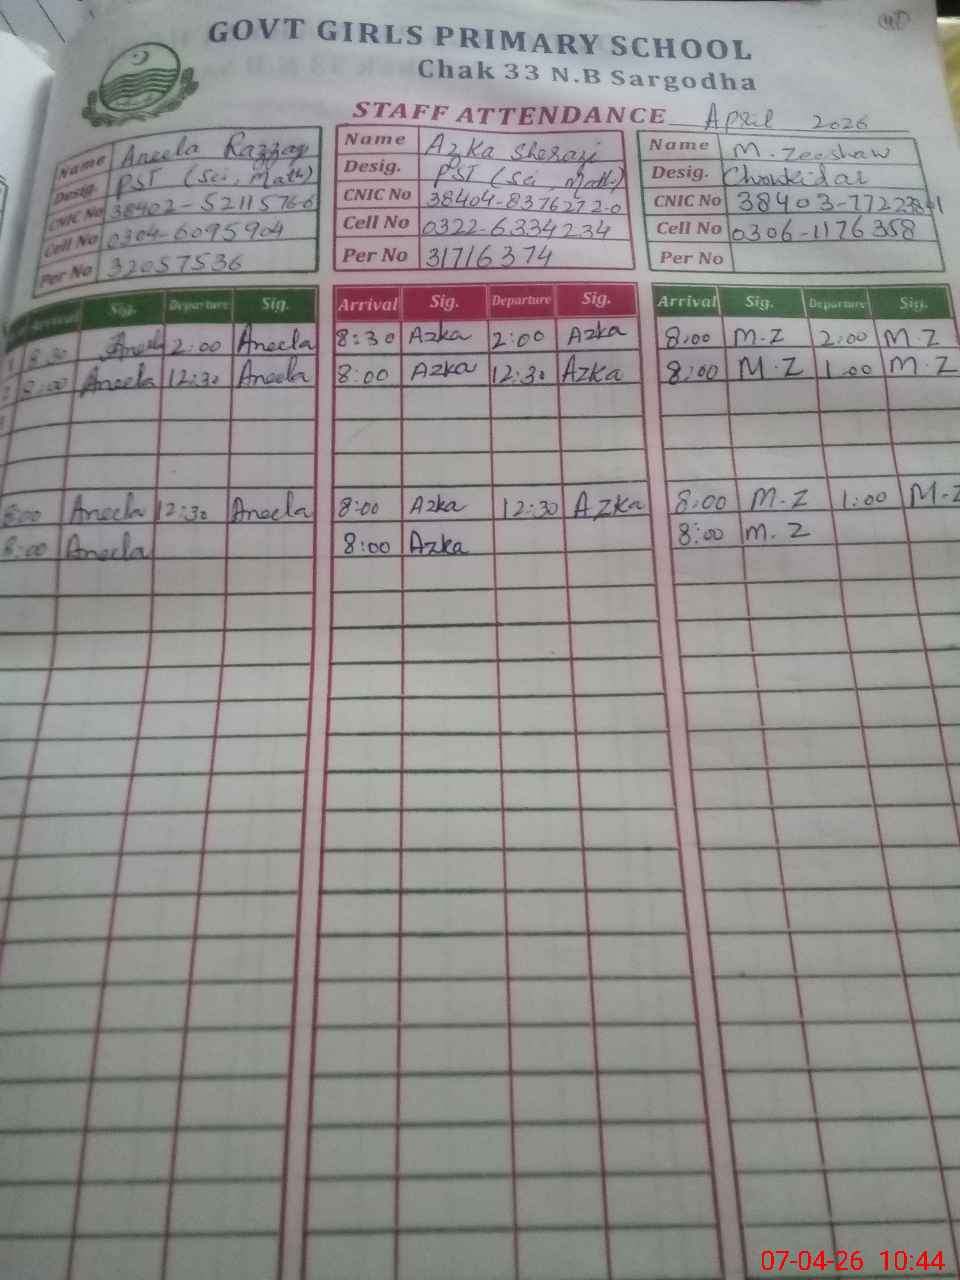 GOVT GIRLS PRIMARY SCHOOL
Chak 33 N.B Sargodha
STAFF ATTENDANCE April 2026
Name Aneela Razzaq
Desig. PST (Sci, Math)
CNIC No 38402-5211576-6
Cell No 0304-6095904
Per No 32057536
Name Azka Sherazi
Desig. PST (Sci, Math)
CNIC No 38404-8376272-0
Cell No 0322-6334234
Per No 31716374
Name M. Zeeshaw
Desig. Chowkidar
CNIC No 38403-
Cell No 0306-1176358
Per No
Arrival Sig. Departure Sig. Arrival Sig. Departure Sig. Arrival Sig. Departure Sig.
1 8:30 Aneela 2:00 Aneela 8:30 Azka 2:00 Azka 8:00 M.Z 2:00 M.Z
2 8:00 Aneela 12:30 Aneela 8:00 Azka 12:30 Azka 8:00 M.Z 1:00 M.Z
8:00 Aneela 12:30 Aneela 8:00 Azka 12:30 Azka 8:00 M.Z 1:00 M.Z
8:00 Aneela 8:00 Azka 8:00 M.Z
07-04-26 10:44